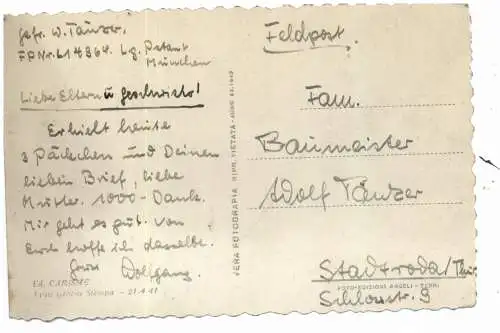 Gefr. W. Tänzer.
FPNr. L14864. Lg. Postamt
München
Liebe Eltern u. Geschwister!
Erhielt heute
3 Päckchen und Deinen
lieben Brief, liebe
Mutter. 1000-Dank.
Mir geht es gut. Von
Euch hoffe ich dasselbe.
Gruss Wolfgang.
21-4-41
VERA FOTOGRAFIA RIPR. VIETATA
Feldpost.
Fam.
Baumeister
Adolf Tänzer
Stadtroda/Thür
Schlossstr. 9
FOTO-EDIZIONI ANGELI - TERNI